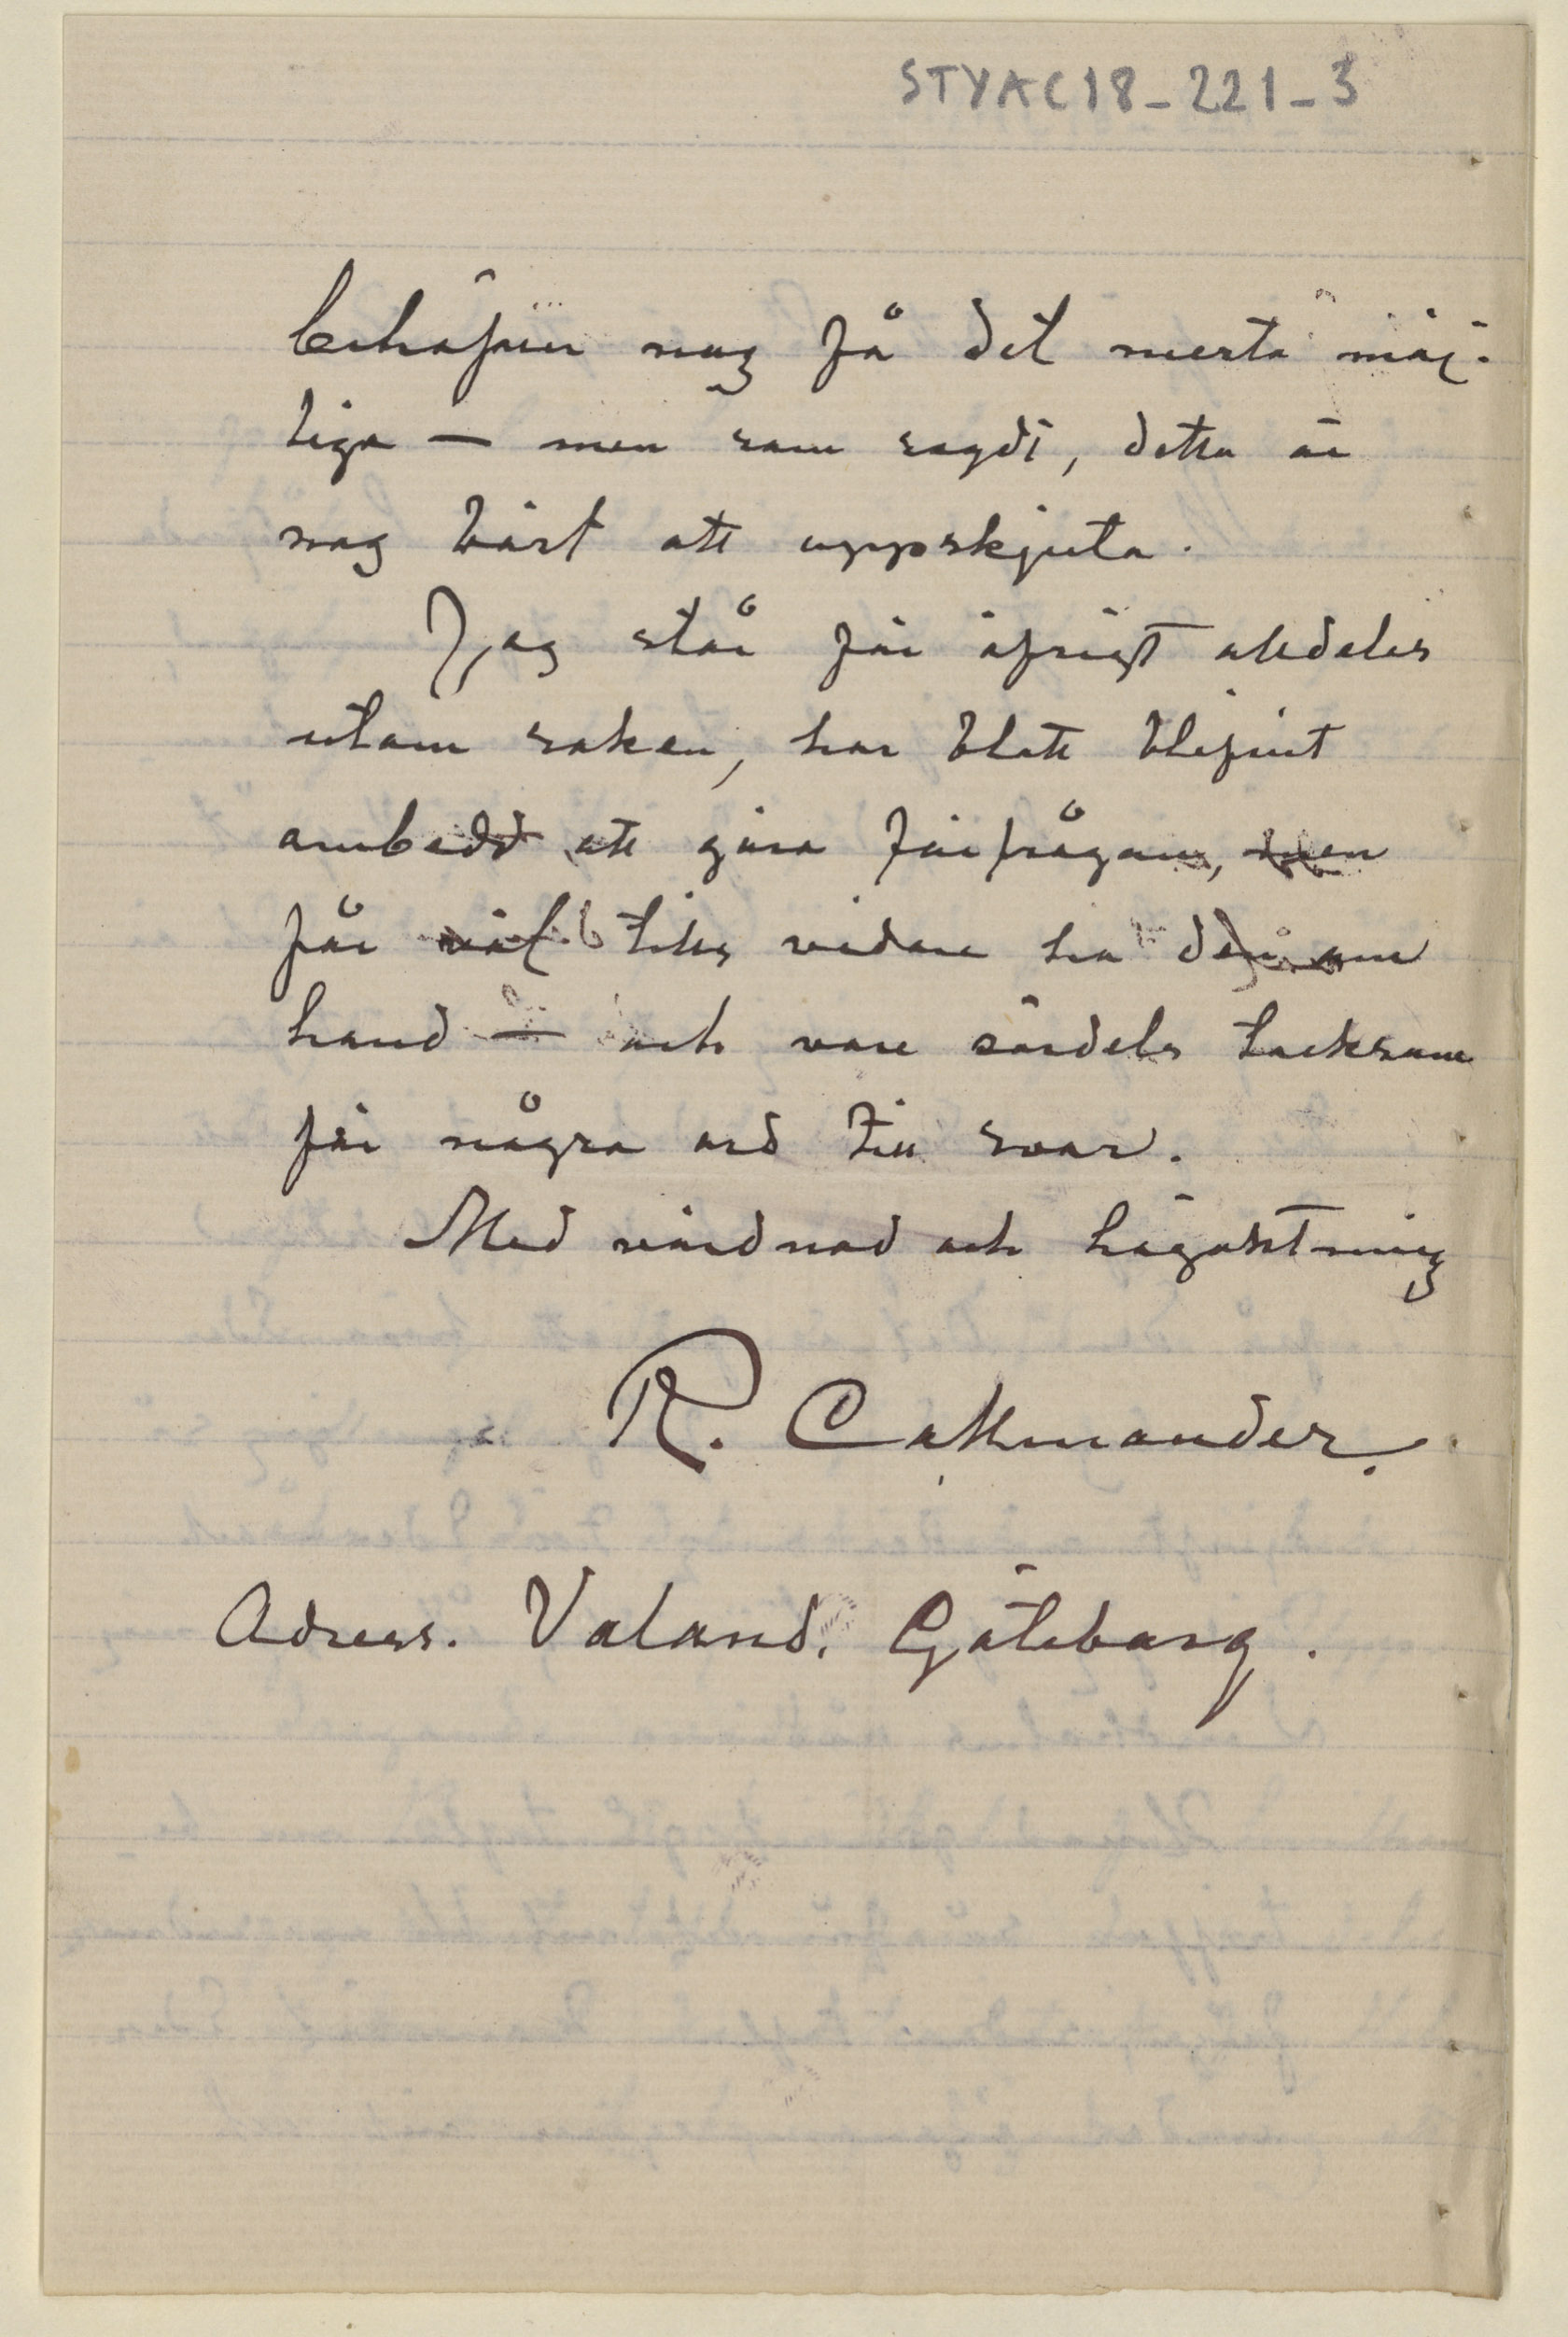 STYAC18_221_3
behöfver nog få det mesta möj-
liga — men som sagdt, detta är
nog bäst att uppskjuta.
Jag står för öfrigt alldeles
utom saken, har blott blifvit
ombedd att göra förfrågan, men
får väl tills vidare ha den om
hand — och vore särdeles tacksam
för några ord till svar.
Med vördnad och högaktning
R. Callmander.
Adress. Valand. Göteborg.